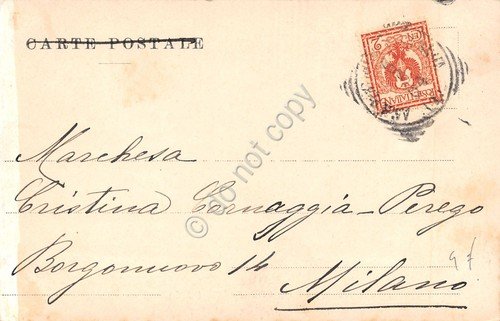 CARTE POSTALE
Marchesa
Cristina Cornaggia-Perego
Borgonuovo 14
Milano
© do not copy